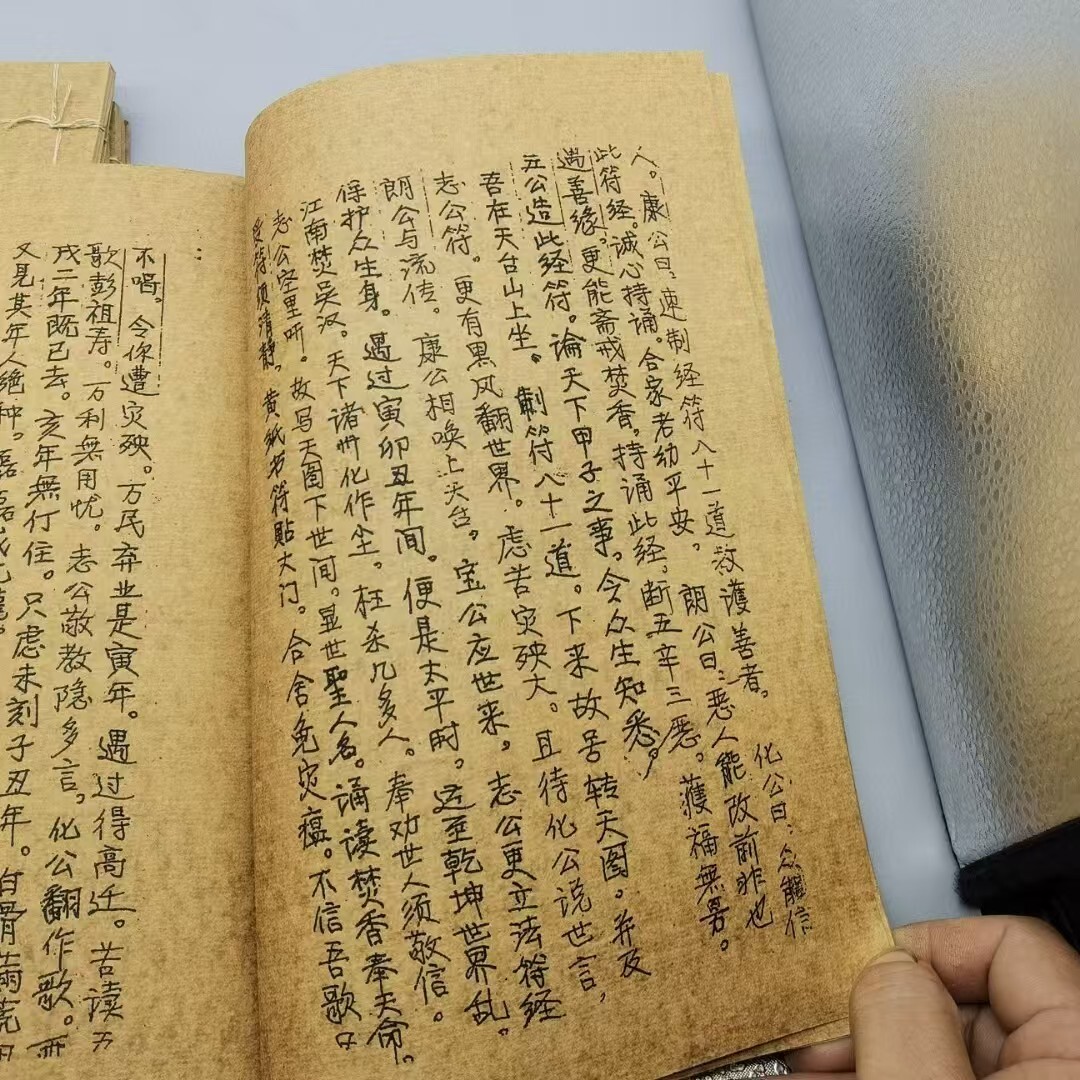 人。康公曰：速制经符八十一道救護善者。 化公曰：众能信
此符经。诚心持诵。合家老幼平安， 朗公曰：恶人能改前非也
遇善缘，更能斋戒焚香，持诵此经，断五辛三恶。獲福無另。
五公造此经符。論天下甲子之事，令众生知悉。
吾在天台山上坐。制符八十一道。下来故苦转天图。并及
志公符。更有黑风翻世界。虑苦灾殃大。且待化公说世言，
朗公与流传。康公相唤上天台。宝公应世来。志公更立法符经
保护众生身。遇过寅卯丑年间。便是太平时。运至乾坤世界乱。
江南焚吴汉。天下诸州化作尘。枉杀几多人。奉劝世人须敬信。
志公空里听。故写天图下世间。显世聖人名。诵读焚香奉天命。
受符须清静。黄纸书符贴大门。合舍免灾瘟。不信吾歌
不唱。令你遭灾殃。万民弃业是寅年。遇过得高迁。苦读五
歌彭祖寿。万利無用忧。志公敬教隐多言，化公翻作歌。
戌二年既已去。亥年無行住。只虑未刻子丑年。白骨
又见其年人绝种。